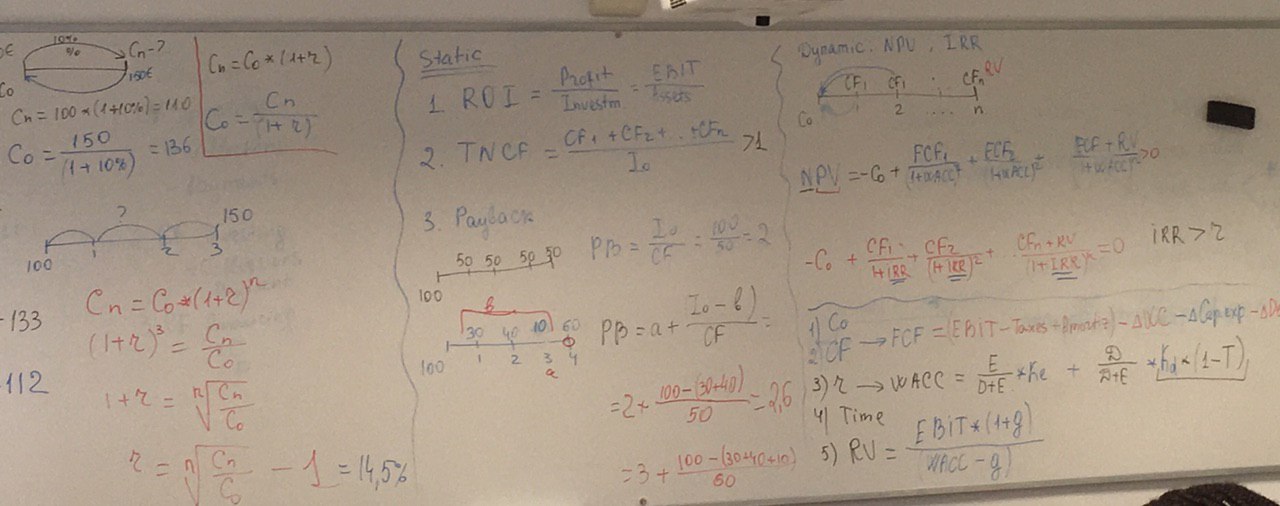 0€
10%
%
Cn-?
150€
Co
Cn = 100*(1+10%) = 110
Co = 150/(1+10%) = 136
Cn = Co*(1+r)
Co = Cn/(1+r)
?
150
100 1 2 3
-133
-112
Cn = Co*(1+r)^n
(1+r)^3 = Cn/Co
1+r = n√(Cn/Co)
r = n√(Cn/Co) - 1 = 14,5%
Static
1. ROI = Profit/Investm = EBIT/Assets
2. TNCF = (CF1 + CF2 + .. +CFn)/Io >1
3. Payback
50 50 50 50
100
PB = Io/CF = 100/50 = 2
b
30 40 10 60
100 1 2 3 4
a
PB = a + (Io - b)/CF =
=2+ (100-(30+40))/50 = 2,6
=3+ (100-(30+40+10))/60
Dynamic: NPV, IRR
CF1 CF1 : CFn RV
Co 1 2 .... n
NPV = -Co + FCF1/(1+WACC)^1 + FCF2/(1+WACC)^2 + (FCF+RV)/(1+WACC) >0
-Co + CF1/(1+IRR) + CF2/(1+IRR)^2 + (CFn+RV)/(1+IRR)^n = 0 IRR > r
1) Co
2) CF → FCF = (EBIT-Taxes+Amortiz) - ΔWC - ΔCap.exp - ΔDe
3) r → WACC = E/(D+E) * Ke + D/(D+E) * Kd * (1-T)
4) Time
5) RV = EBIT*(1+g)/(WACC-g)